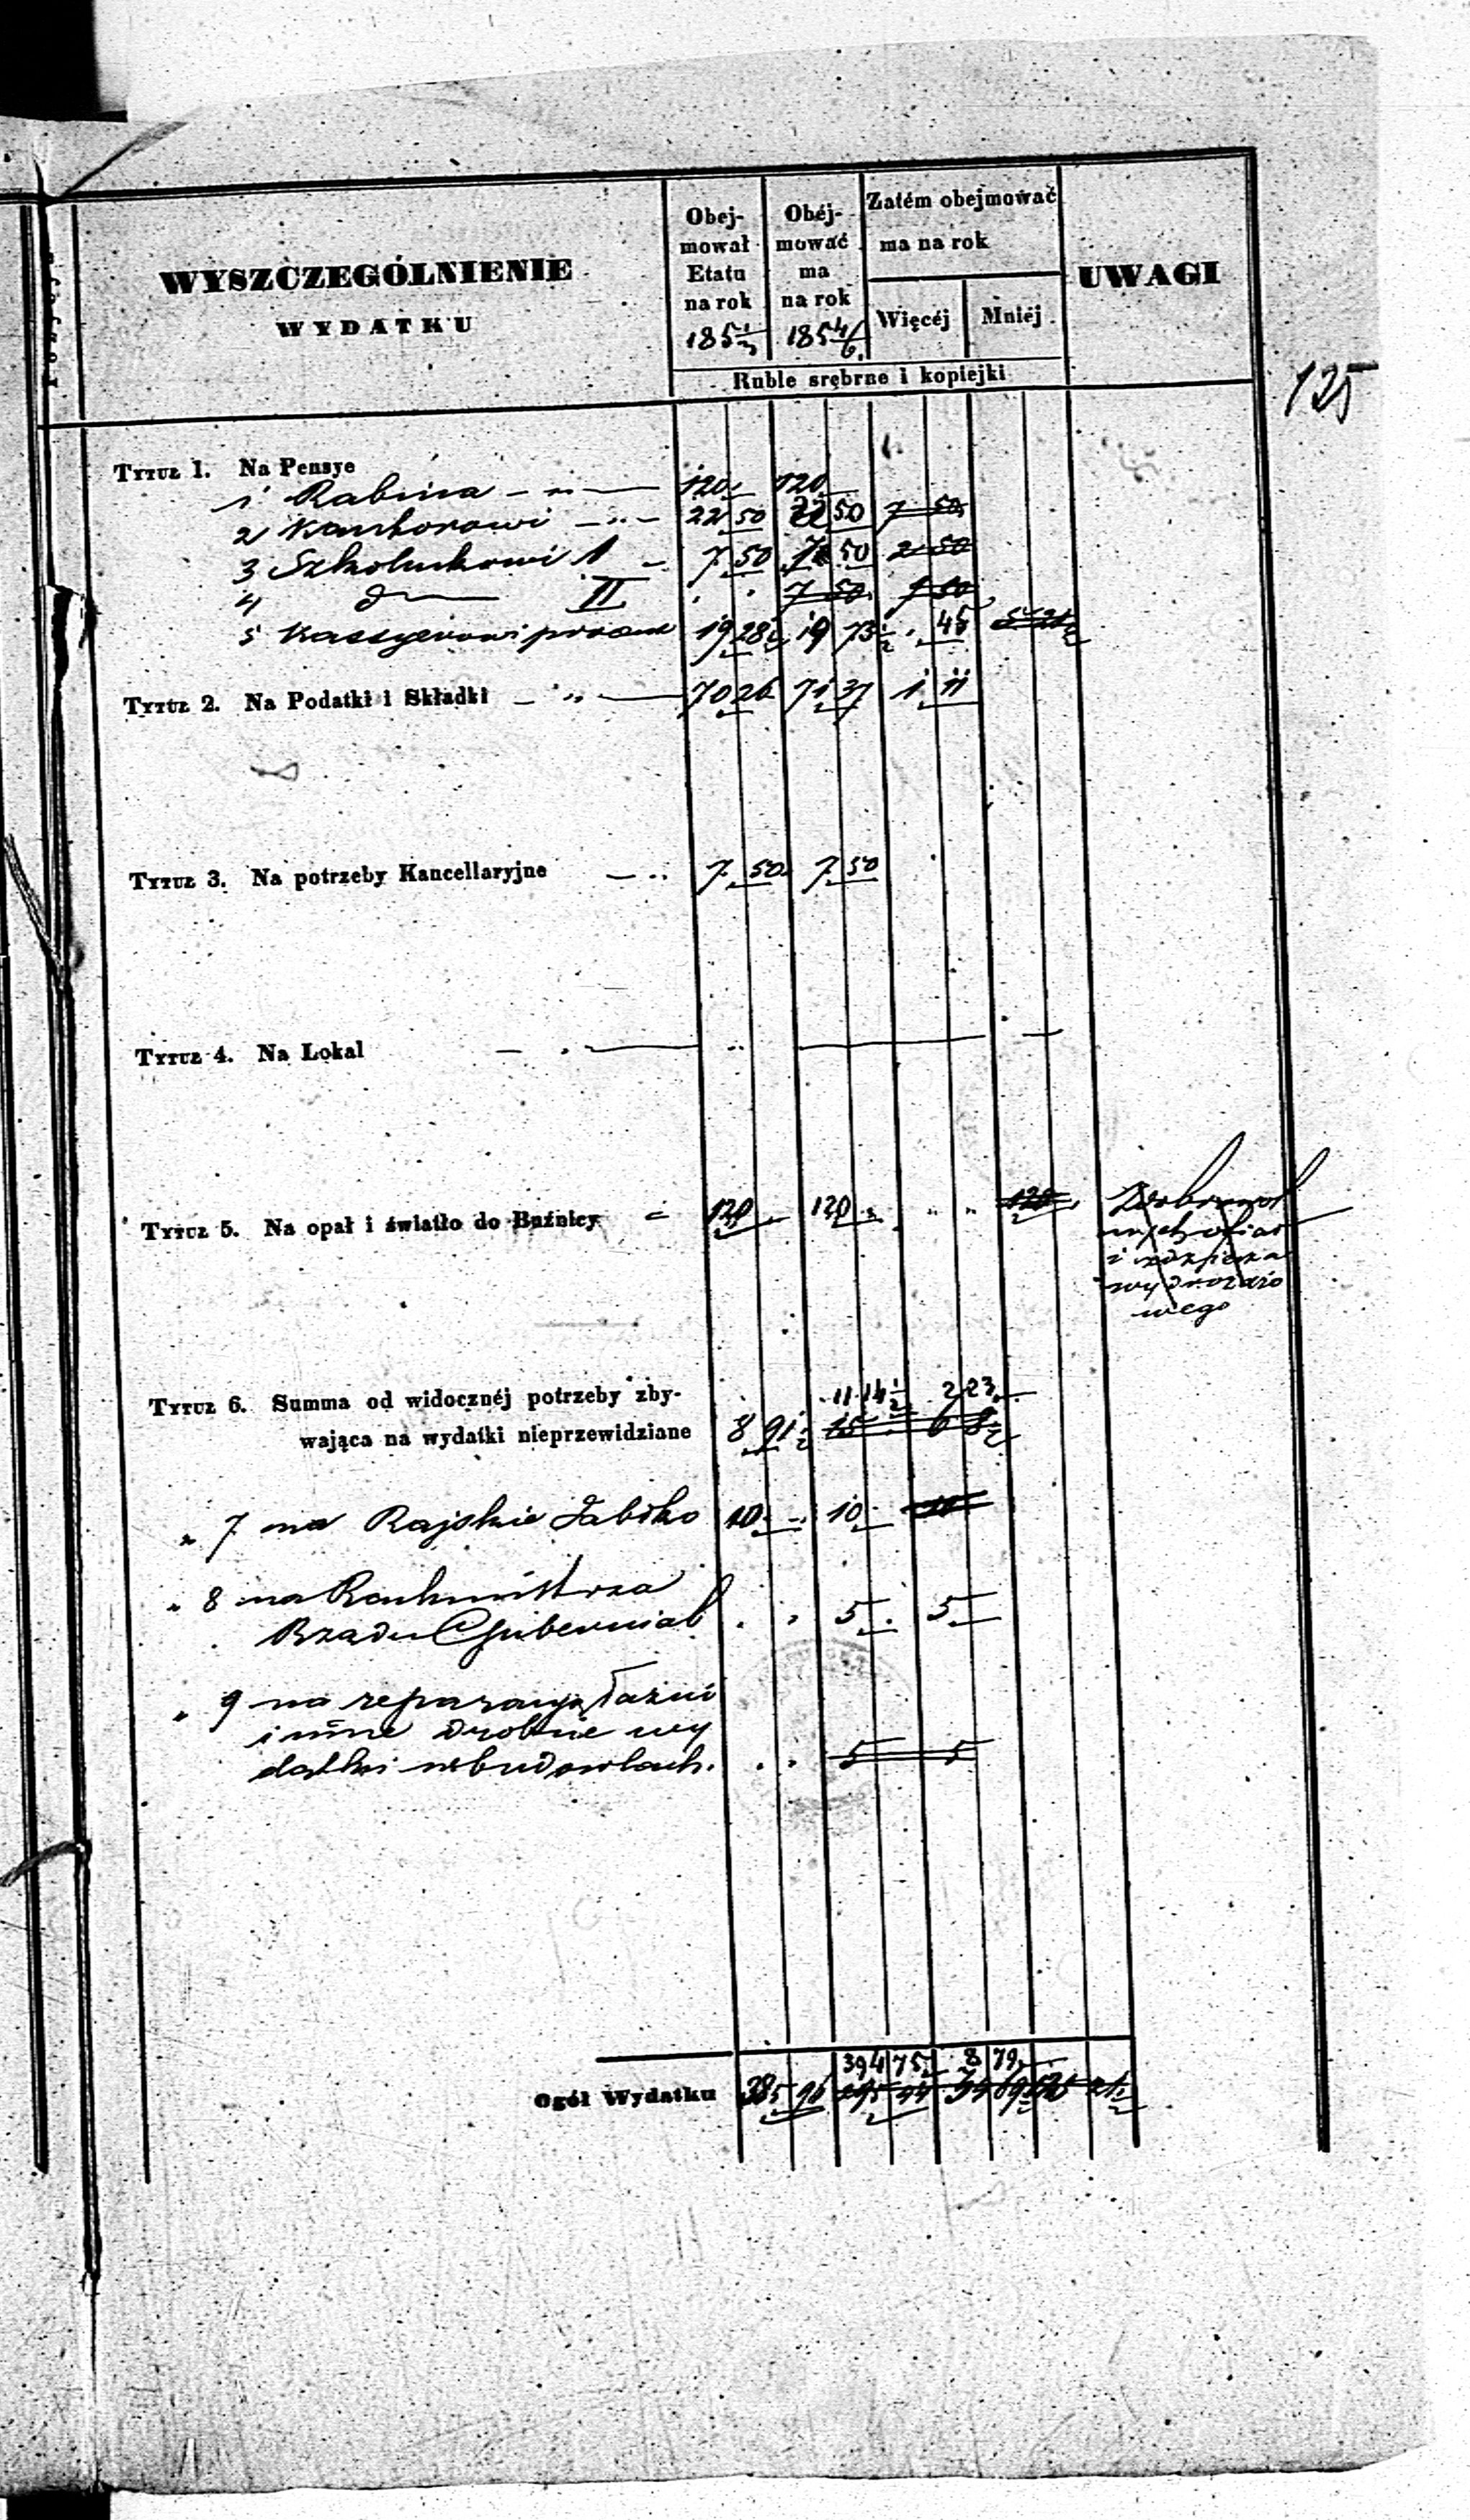 WYSZCZEGÓLNIENIE
WYDATKU
Obej-
mował
Etatu
na rok
1851/3
Obéj-
mować
ma
na rok
1854/6.
Zatém obejmować
ma na rok
Więcéj
Mniéj
UWAGI
Ruble srébrne i kopiejki
125
Tytuł 1. Na Pensye
1 Rabina 120 120
2 Kantorowi 22 50 22 50 7 50
3 Szkolnikowi 1 7 50 7 50 2 50
4 d II 7 50 7 50
5 Kassyerowi procent 19 28½ 19 73½ 45 5 21½
Tytuł 2. Na Podatki i Składki 70 26 71 37 1 11
Tytuł 3. Na potrzeby Kancellaryjne 7 50 7 50
Tytuł 4. Na Lokal
Tytuł 5. Na opał i światło do Buźnicy 120 120 120
wego
Tytuł 6. Summa od widocznéj potrzeby zby- 11 14½ 2 23
wająca na wydatki nieprzewidziane 8 91½ 15 6 8½
" 7 na Rajskie Jabłko 10 10
" 8 na Rachmistrza
Rządu Gubernial 5 5
" 9 na reparacyą Łaźni
i inne drobne wy
datki w budowlach. 5 5
394 75 8 79
Ogół Wydatku 385 96